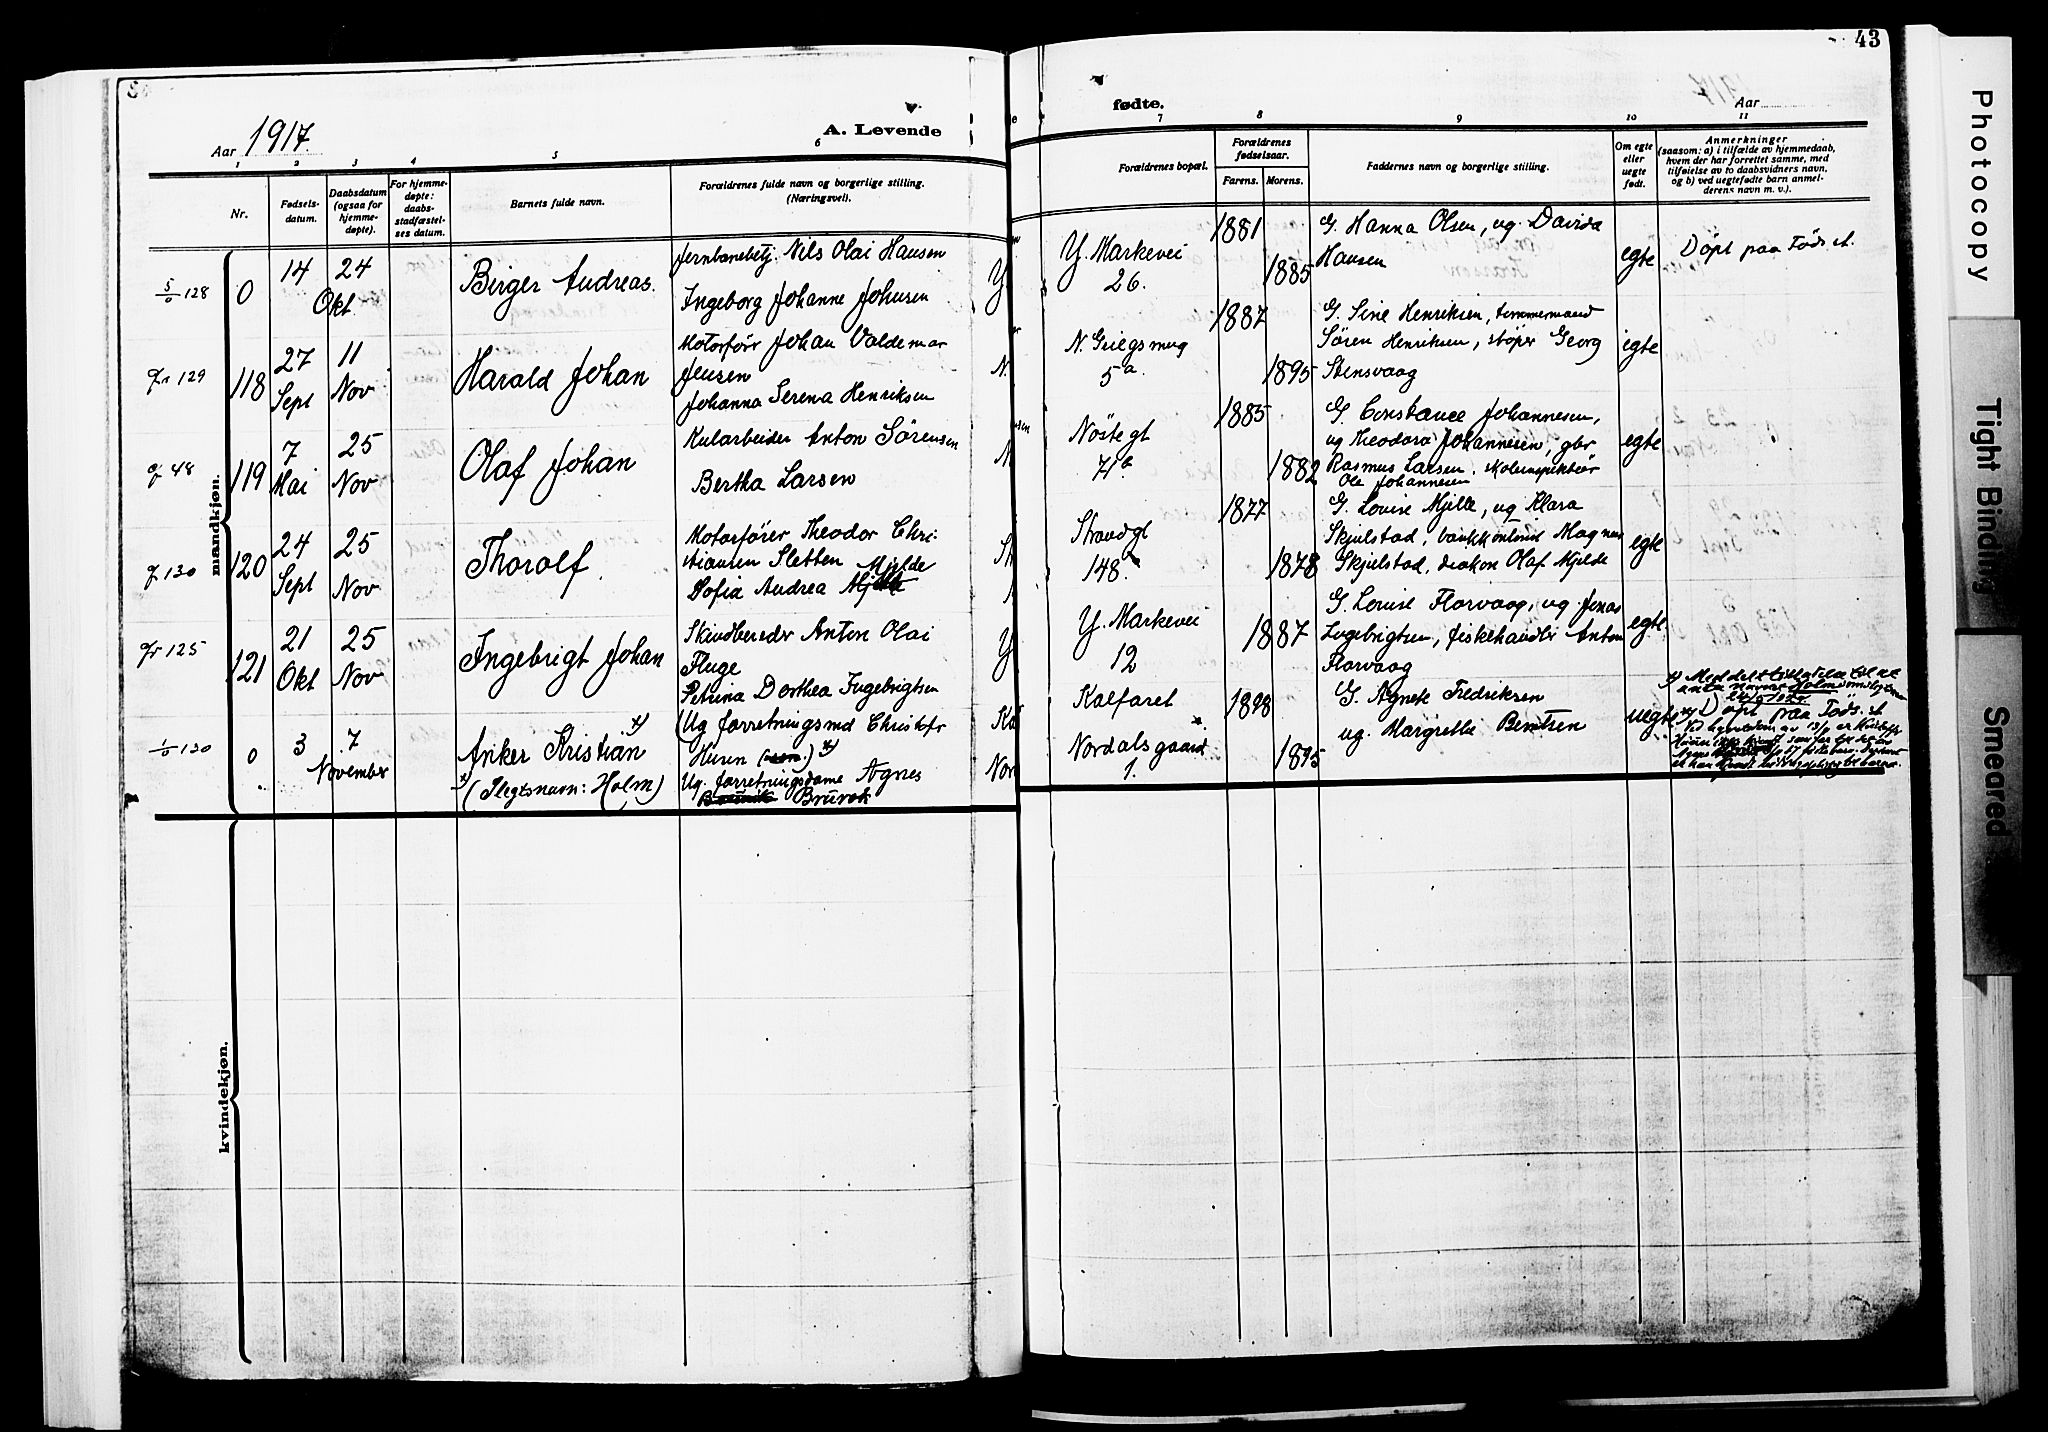 43
Aar 1917.
A. Levende
fødte.
Aar
1
2
3
4
5
6
7
8
9
10
11
Nr.
Fødsels-
datum.
Daabsdatum
(ogsaa for
hjemme-
døpte).
For hjemme-
døpte:
daabs-
stadfæstel-
ses datum.
Barnets fulde navn.
Forældrenes fulde navn og borgerlige stilling.
(Næringsvei).
Forældrenes bopæl.
Forældrenes
fødselsaar.
Farens.
Morens.
Faddernes navn og borgerlige stilling.
Om egte
eller
uegte
født.
Anmerkninger
(saasom: a) i tilfælde av hjemmedaab,
hvem der har forrettet samme, med
tilføielse av to daabsvidners navn,
og b) ved uegtefødte barn anmel-
derens navn m. v.).
mandkjøn.
5/128
0
14
24
Okt
Birger Andreas.
Jernbanebetj. Nils Olai Hansen
Ingeborg Johanne Johnsen
Y. Markevei
26.
1881
1885
G. Hanna Olsen, ug. Davida
Hansen
egte
Døpt paa Føds. st.
129
118
27
Sept
11
Nov
Harald Johan
Motorfører Johan Valdemar
Jensen
Johanna Serena Henriksen
N. Griegsmug
5a.
1887
1895
G. Sine Henriksen, tømmermand
Søren Henriksen, støper Georg
Stensvaag
egte
48
119
7
Mai
25
Nov
Olaf Johan
Kularbeider Anton Sørensen
Bertha Larsen
Nøstegt
71b
1885
1882
G. Constance Johannesen,
ug Theodora Johannesen, gbr
Rasmus Larsen, skoleinspektør
Ole Johannesen
egte
130
120
24
Sept
25
Nov
Thorolf
Motorfører Theodor Chri-
stiansen Sletten
Sofia Andrea Mjelde
Strandgt
148.
1877
1878
G. Louise Mjelde, ug Klara
Skjulstad, Magnus
Skjulstad, diakon Olaf Mjelde
egte
125
121
21
Okt
25
Nov
Ingebrigt Johan
Skindbereder Anton Olai
Fluge
Petrina Dorthea Ingebrigtsen
Y. Markevei
12
1887
G. Louise Florvaag, ug. Jonas
Ingebrigtsen, fiskehandler Anton
Florvaag
egte
130
0
3
7
November
Anker Kristian x)
x) (Slegtsnavn: Holm)
(Ug forretningsmd Christofer
Ug. forretningsdame Agnes
Kalfaret
Nordalsgaard
1.
1898
1895
G. Agnete Fredriksen
ug. Margrethe Berntsen
uegte
Døpt paa Føds. st.
kvindekjøn.
Photocopy
Tight Binding
Smeared